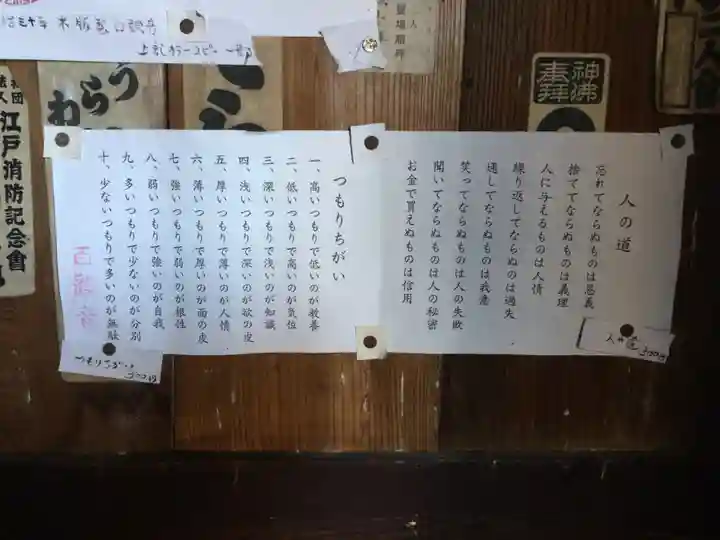 人の道
忘れてならぬものは恩義
捨ててならぬものは義理
人に与えるものは人情
繰り返してならぬのは過失
通してならぬものは我意
笑ってならぬものは人の失敗
聞いてならぬものは人の秘密
お金で買えぬものは信用
つもりちがい
一、高いつもりで低いのが教養
二、低いつもりで高いのが気位
三、深いつもりで浅いのが知識
四、浅いつもりで深いのが欲の皮
五、厚いつもりで薄いのが人情
六、薄いつもりで厚いのが面の皮
七、強いつもりで弱いのが根性
八、弱いつもりで強いのが自我
九、多いつもりで少ないのが分別
十、少ないつもりで多いのが無駄
つもりちがい
人の道
神佛
奉拝
江戸消防記念會
木版
上記カラーコピー一部